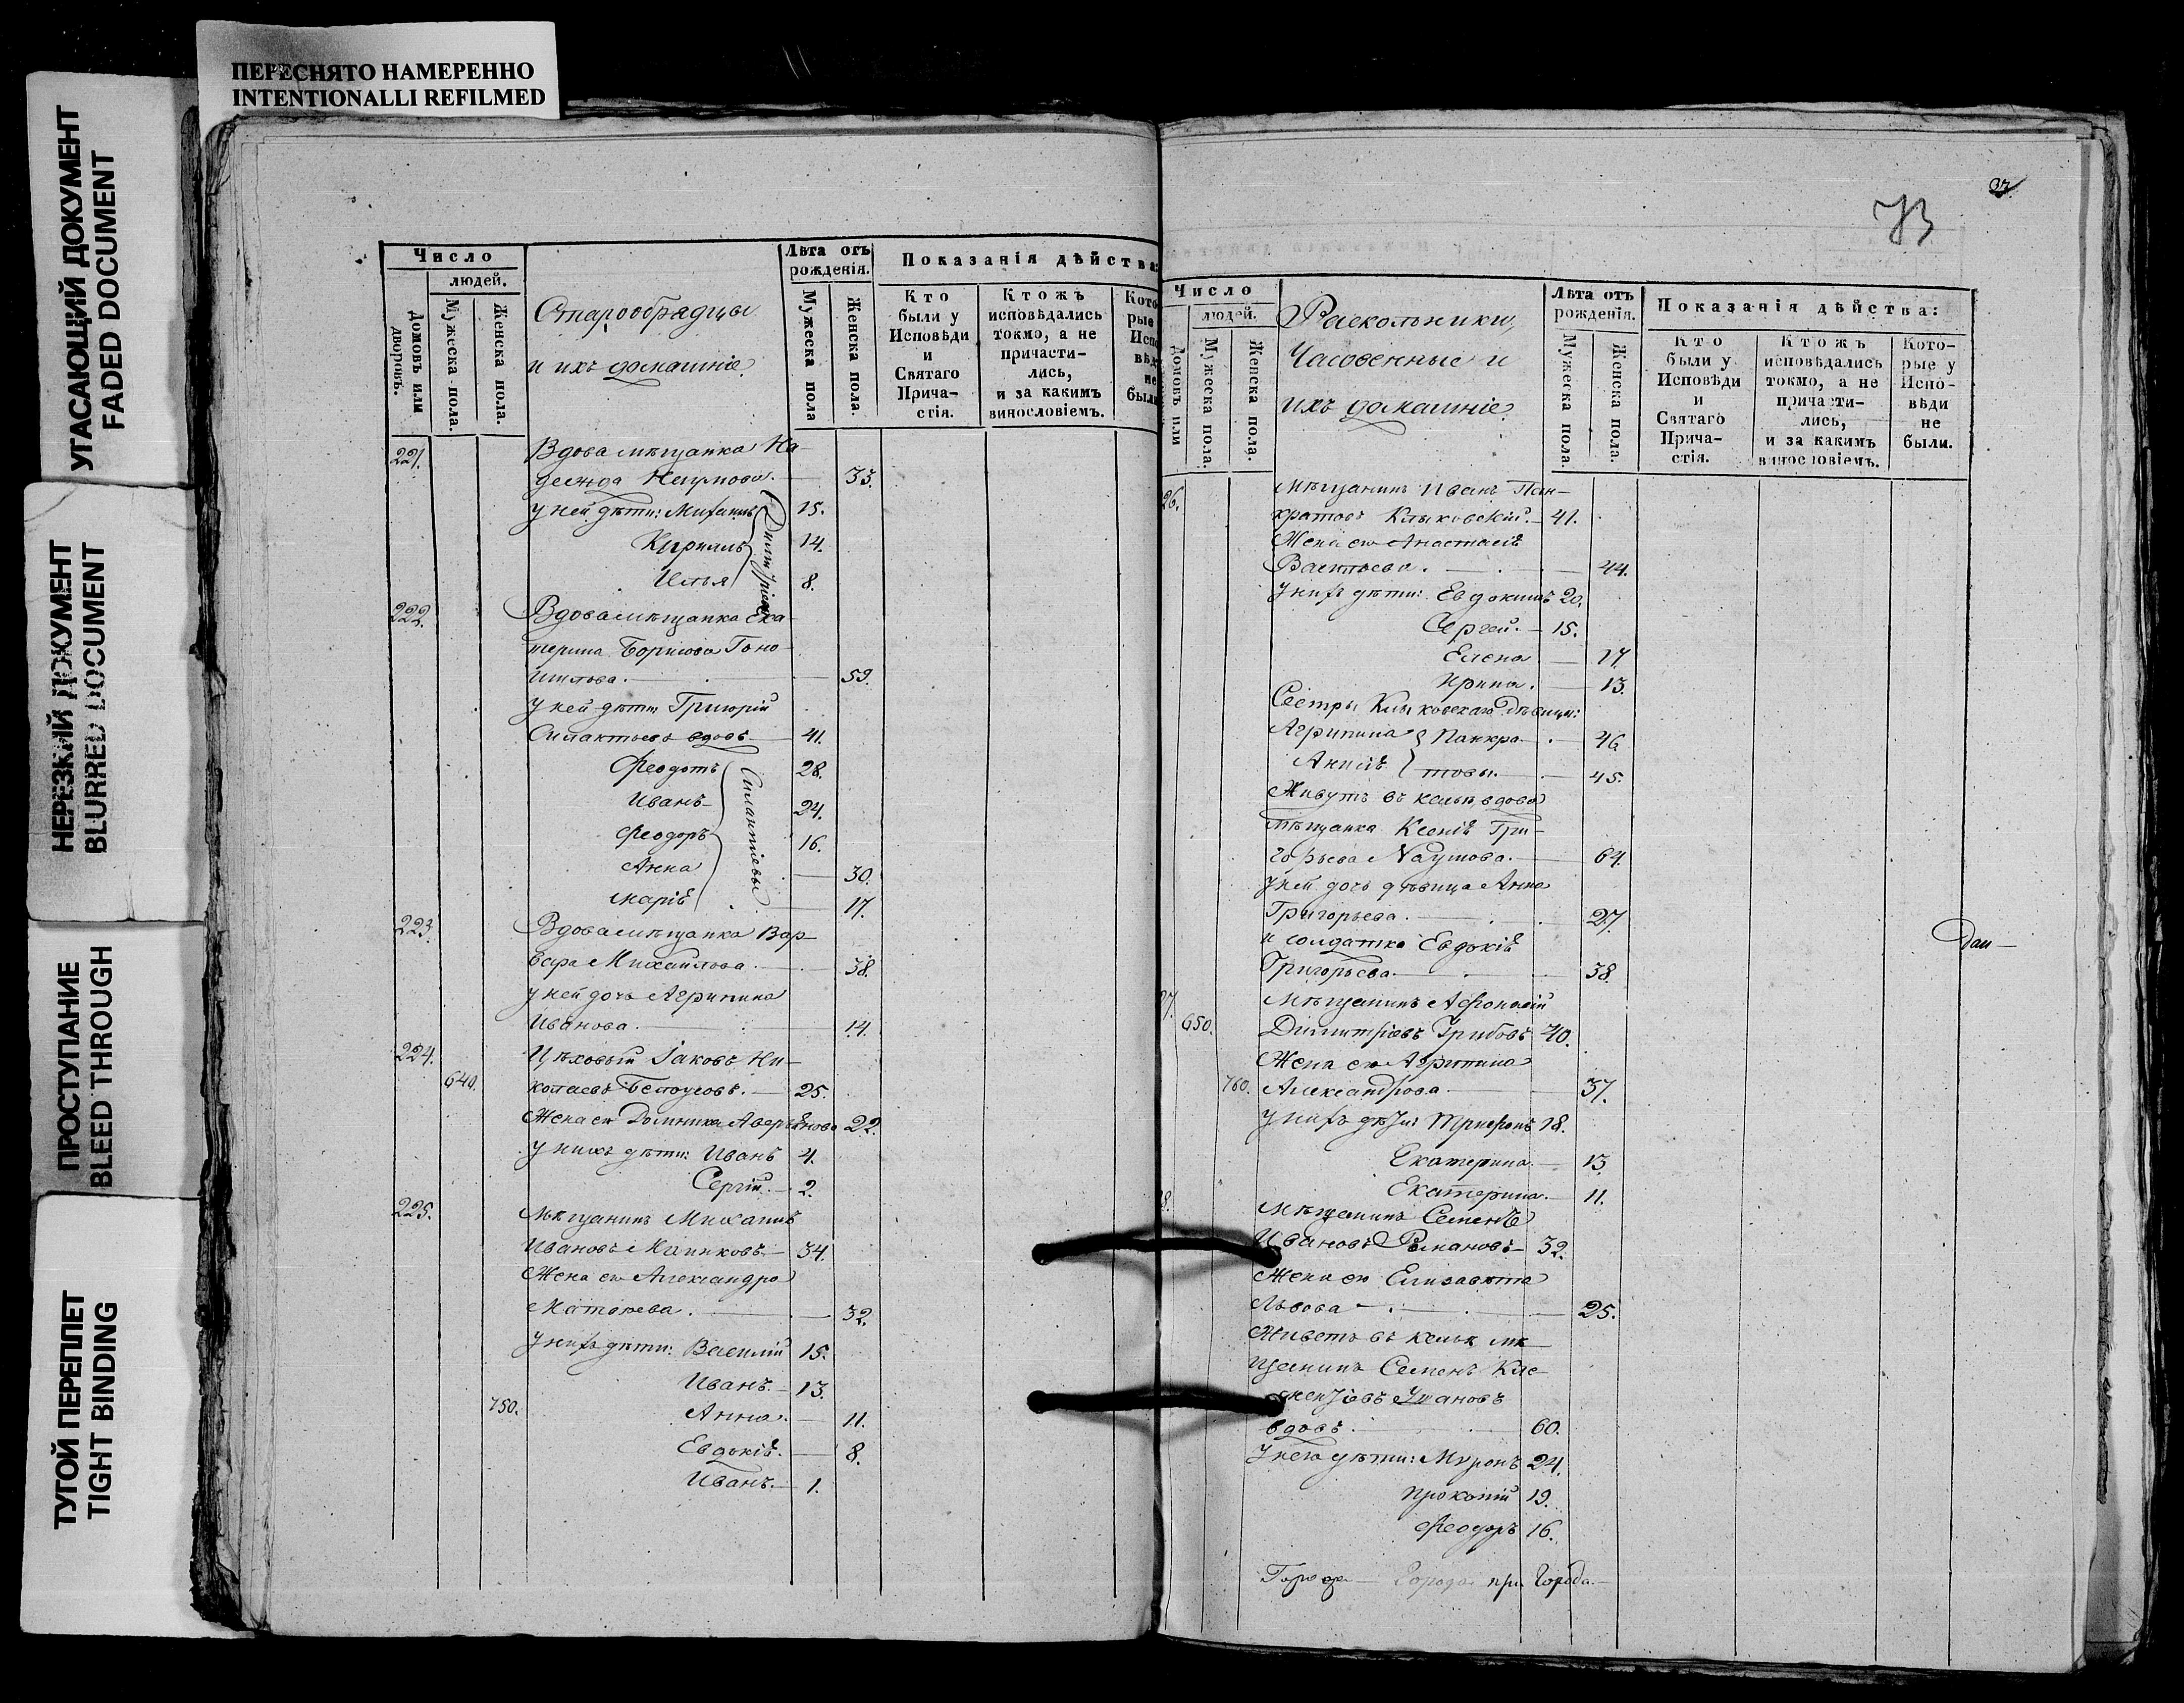 ПЕРЕСНЯТО НАМЕРЕННО
INTENTIONALLI REFILMED
УГАСАЮЩИЙ ДОКУМЕНТ
FADED DOCUMENT
НЕРЕЗКИЙ ДОКУМЕНТ
BLURRED DOCUMENT
ПРОСТУПАНИЕ
BLEED THROUGH
ТУГОЙ ПЕРЕПЛЕТ
TIGHT BINDING
Число
людей.
Домовъ или дворовъ.
Мужеска пола.
Женска пола.
Старообрядцы
и ихъ домашніе.
Лѣта отъ рожденія.
Мужеска пола
Женска пола.
Показанія дѣйства:
Кто были у Исповѣди и Святаго Прича-стія.
Ктожъ исповѣдались токмо, а не причасти-лись, и за какимъ винословіемъ.
221. Вдова мѣщанка На-
дежда Наумова. 33.
у ней дѣти: Михаилъ 15.
Кирилъ 14.
Илья 8.
Димитріевы
222. Вдова мѣщанка Ека-
терина Борисова
59.
у ней дѣти Григорій
Силактьевъ вдовъ 41.
Феодотъ 28.
Иванъ 24.
Феодоръ 16.
Анна 30.
Марія 17.
Силантіевы
223. Вдова мѣщанка Вар-
вара Михаилова. 38.
у ней дочь Агрипина
Иванова. 14.
224. Цѣховый Іаковъ Ни-
640. колаевъ Белоусовъ. 25.
Жена ею Домника Аверьянова 22.
у нихъ дѣти: Иванъ 4.
Сергій. 2.
225. Мѣщанинъ Михаилъ
Ивановъ 34.
Жена ею Александра
Матвѣева. 32.
у нихъ дѣти: Василій 15.
Иванъ. 13.
750. Анна. 11.
Евдокія. 8.
Иванъ. 1.
37
73
Число
людей.
Домовъ или
Мужеска пола.
Женска пола.
Раскольники,
Часовенные и
ихъ домашніе.
Лѣта отъ рожденія.
Мужеска пола.
Женска пола.
Показанія дѣйства:
Кто были у Исповѣди и Святаго Прича-стія.
Ктожъ исповѣдались токмо, а не причасти-лись, и за какимъ винословіемъ.
Кото-рые у Испо-вѣди не были.
26. Мѣщанинъ Иванъ Пан-
кратовъ Клыковскій. 41.
Жена ею Анастасія
Васильева. 44.
у нихъ дѣти: Евдокимъ 20.
Сергей. 15.
Елена 17.
Ирина. 13.
Сестры Клыковскаго дѣвицы:
Агрипина Панкра- 46
Анисія товы. 45.
Живутъ въ кельи, вдова
мѣщанка Ксенія Гри-
горьева Наумова. 64.
у ней дочь дѣвица Анна
Григорьева. 27.
и солдатка Евдокія
Григорьева. 38
27. Мѣщанинъ Афонасій
650. Димитріевъ Грибовъ 40.
Жена ею Агрипина
760. Александрова. 37.
у нихъ дѣти: Трифонъ 18.
Екатерина. 13.
Екатерина. 11.
8. Мѣщанинъ Семенъ
Ивановъ Романовъ 32.
Жена ею Елизавета
Львова 25.
Живетъ въ кельи мѣ-
щанинъ Семенъ Кле-
ментіевъ
вдовъ. 60.
У него дѣти: Миронъ 24.
Прокопій 19.
Феодоръ 16.
Города при Города